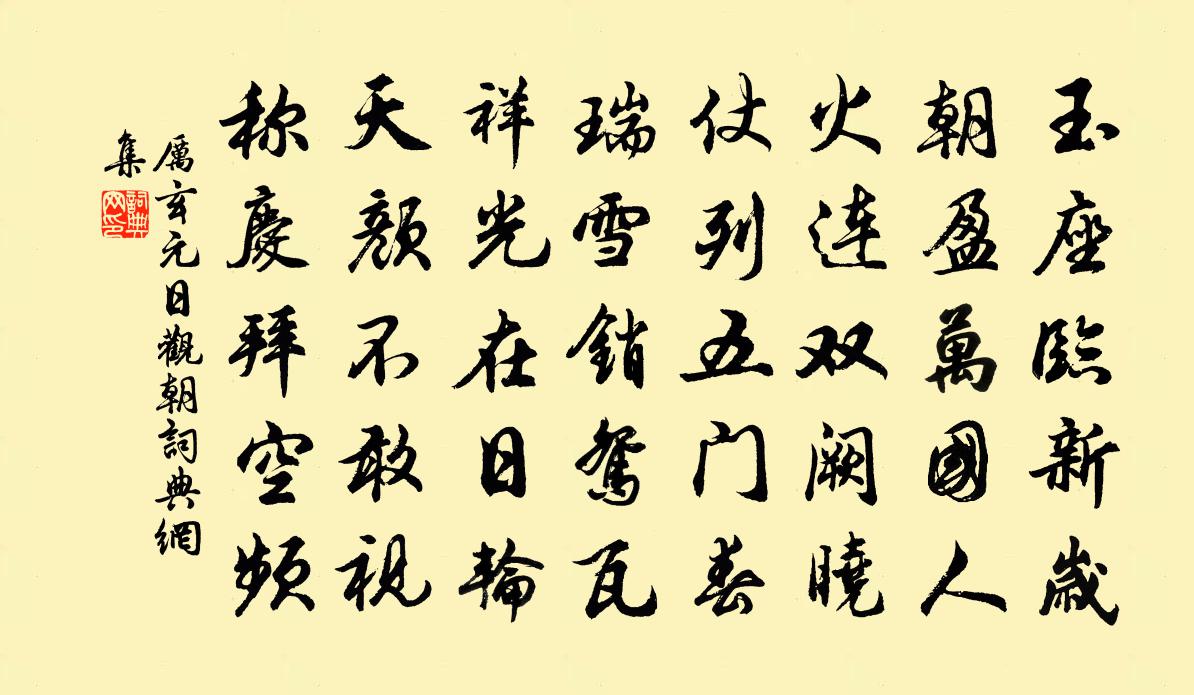 玉座臨新歲
朝盈萬國人
火连双阙曉
仗列五门春
瑞雪銷鴛瓦
祥光在日輪
天颜不敢視
称慶拜空頻
厲玄元日觀朝詞典網
集
詞典网印